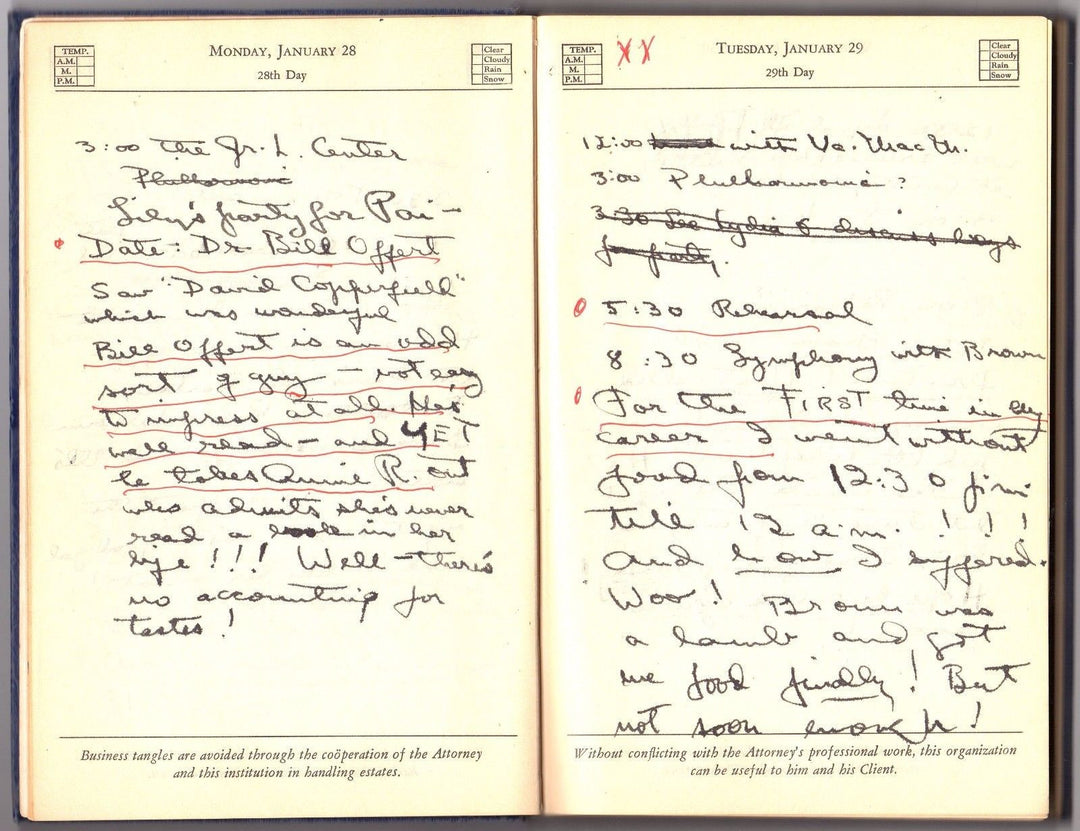 TEMP.
A.M.
M.
P.M.
MONDAY, JANUARY 28
28th Day
Clear
Cloudy
Rain
Snow
3:00 the Jr. L. Center
Philharmonic
Lily's party for Pai-
Date: Dr Bill Offert
Saw "David Copperfield"
which was wonderful
Bill Offert is an odd
sort of guy — not easy
to impress at all. He's
well read — and YET
he takes Annie R. out
who admits she's never
read a book in her
life!!! Well — there's
no accounting for
tastes!
Business tangles are avoided through the coöperation of the Attorney
and this institution in handling estates.
TEMP.
A.M.
M.
P.M.
XX
TUESDAY, JANUARY 29
29th Day
Clear
Cloudy
Rain
Snow
12:00 with Va. MacM.
3:00 Philharmonic?
3:30 See Lydia to discuss boys
for party.
5:30 Rehearsal
8:30 Symphony with Brown
For the FIRST time in my
career I went without
food from 12:30 p.m.
till 12 a.m. ! ! !
And how I suffered.
Woo! Brown was
a lamb and got
me food finally! But
not soon enough!
Without conflicting with the Attorney's professional work, this organization
can be useful to him and his Client.